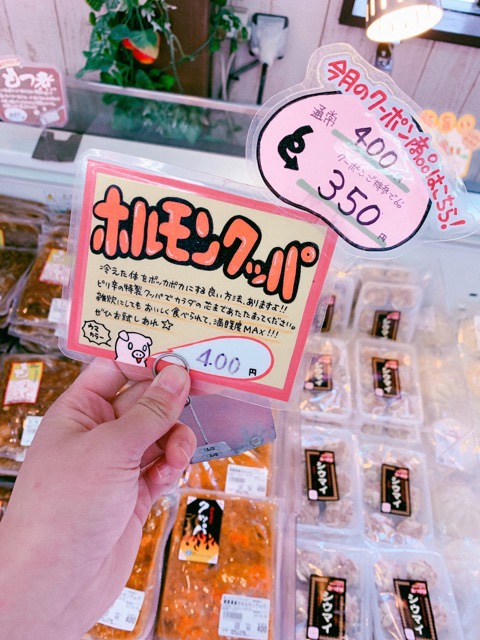 もつ煮
今月のクーポン商品はこちら!
通常
400
クーポンご持参で
350円
ホルモンクッパ
冷えた体をポッカポカにする良い方法、ありますよ!!
ピリ辛の特製クッパでカラダの芯まであたたまってください。
雑炊にしてもおいしく食べられて、満腹度MAX!!!
ぜひお試しあれ☆
400円
クッパ
シュウマイ
シュウマイ
シュウマイ
シュウマイ
シュウマイ
シュウマイ
400
400